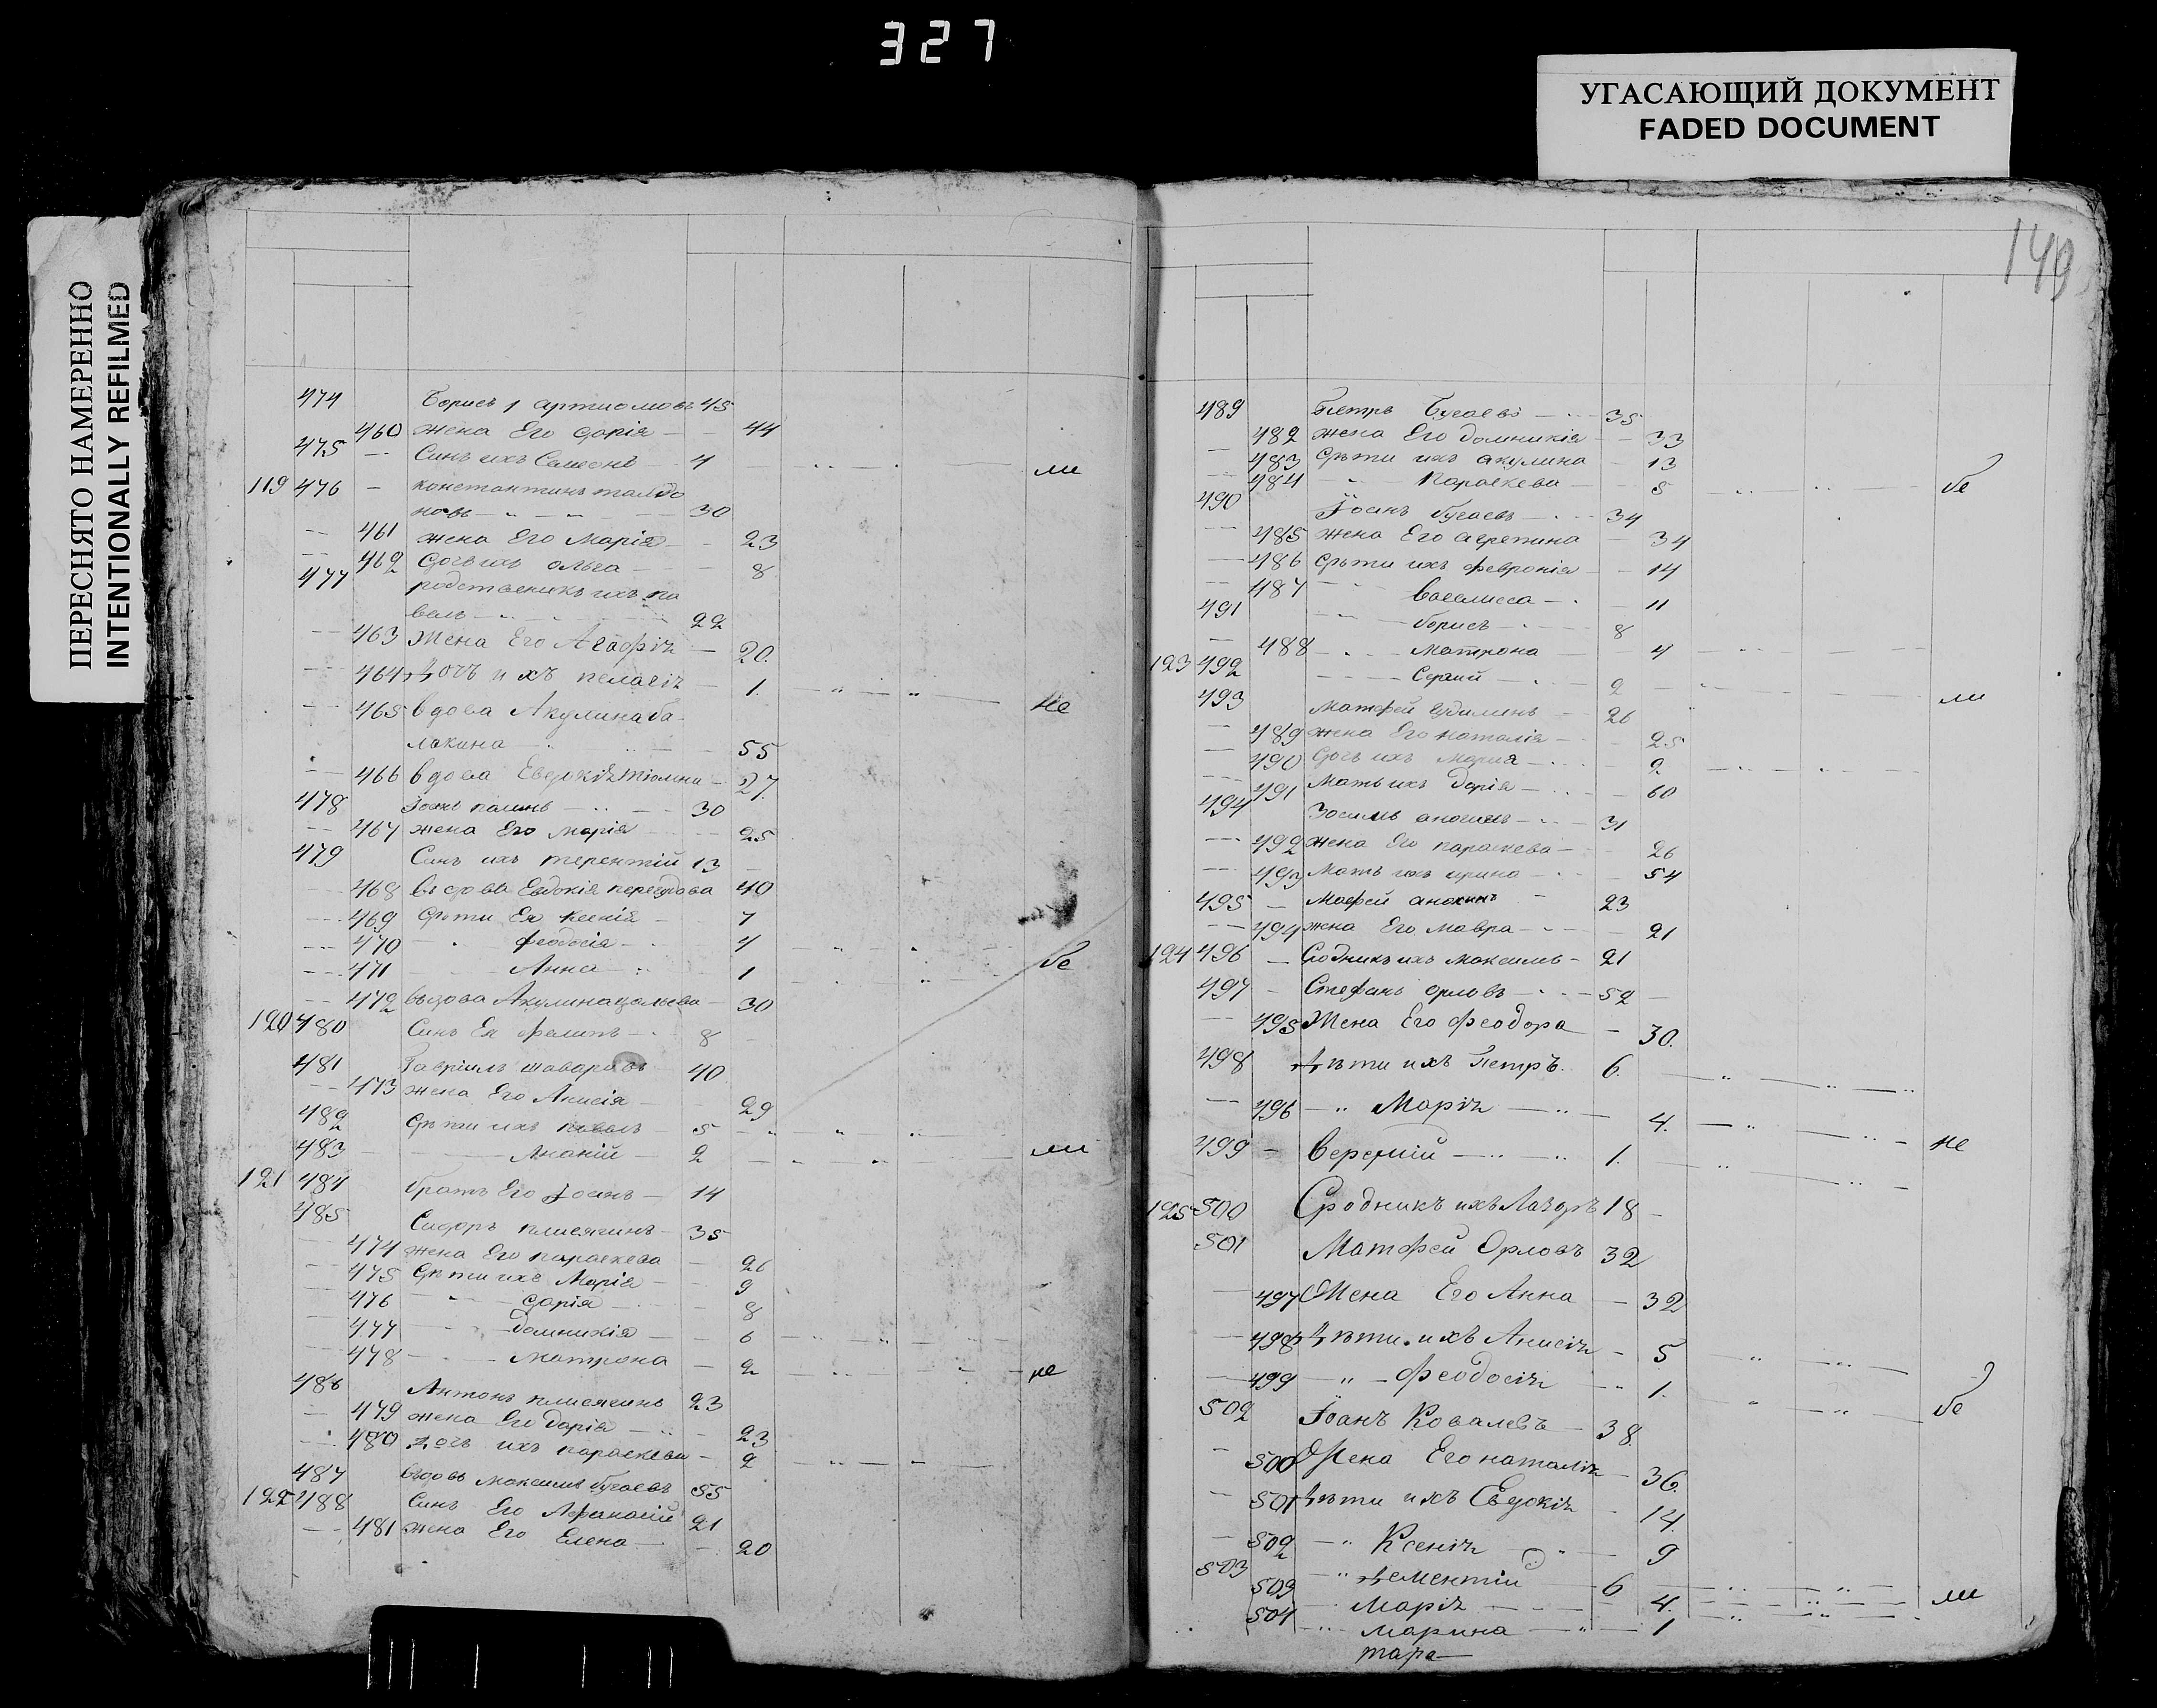 327
УГАСАЮЩИЙ ДОКУМЕНТ
FADED DOCUMENT
ПЕРЕСНЯТО НАМЕРЕННО
INTENTIONALLY REFILMED
149
474 Борисъ артиомовъ 45
460 жена Его дарія 44
475 Синъ ихъ Самсонъ 4
ли
119 476 константинъ
новъ 30
461 жена Его Марія 23
462 дочь ихъ олга 8
477 родственикъ ихъ па
велъ 22
463 Жена Его Агафія 20
464 дочь ихъ пелагія 1
465 вдова Акулина ба
не
лакина 55
466 вдова Евдокія 27
478 Іоанъ 30
467 жена Его марія 25
479 Синъ ихъ терентій 13
468 въдова Евдокія 40
469 дѣти Ея ксенія 7
470 феодосія 4
471 Анна 1
бе
472 въдова Акулина 30
120 480 Синъ Ея филипъ 8
481 Гавріилъ 40
473 жена Его Анисія 29
482 дѣти ихъ павелъ 5
483 Ананій 2
ли
121 484 братъ Его Іоанъ 14
485 Сидоръ 35
474 жена Его параскева 26
475 дѣти ихъ Марія 9
476 дарія 8
477 домникія 6
478 матрона 2
не
486 Антонъ 23
479 жена Его дарія 23
480 дочь ихъ параскева 2
487 вдовъ максимъ бугаевъ 55
122 488 Синъ Его Афанасій 21
481 жена Его Елена 20
489 Петръ Бугаевъ 35
482 жена Его домникія 33
483 дѣти ихъ акулина 13
484 Параскева 5
бе
490 Іоанъ бугаевъ 34
485 жена Его агрепина 34
486 дѣти ихъ февронія 14
487 василиса 11
491 борисъ 8
488 матрона 4
123 492 Сергий 2
ли
493 Матфей 26
489 жена Его наталія 25
490 дочь ихъ мария 2
491 Мать ихъ дарія 60
494 Зосимъ анохинъ 31
492 жена Его параскева 26
493 мать ихъ ирина 54
495 Мафей анохинъ 23
494 жена Его мавра 21
124 496 Сродникъ ихъ максимъ 21
497 Стефанъ орловъ 52
495 Жена Его феодора 30
498 дѣти ихъ Петръ 6
496 Марія 4
не
499 Веремій 1
125 500 Сродникъ ихъ Лазоръ 18
501 Матфей Орловъ 32
497 Жена Его Анна 32
498 дѣти ихъ Анисія 5
499 феодосія 1
бе
502 Іоанъ Ковалевъ 38
500 Жена Его наталія 36
501 дѣти ихъ Евдокія 14
502 Ксенія 9
503 дементій 6
503 Марія 4
ли
504 Марина 1
тара